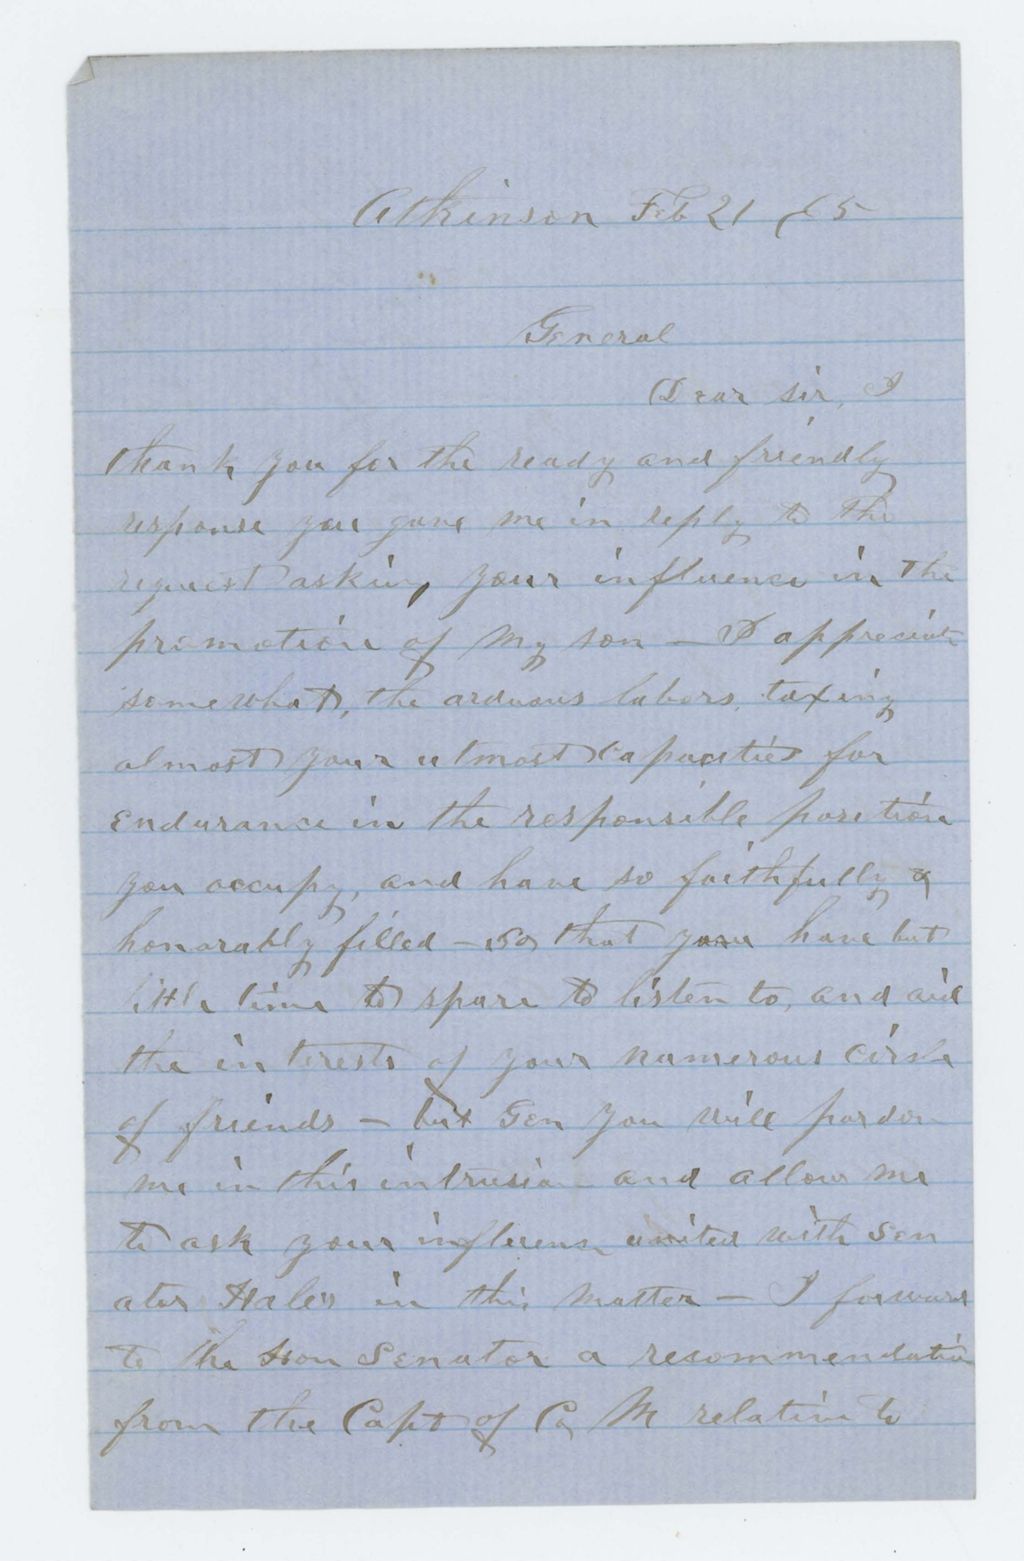 Atkinson Feb 21 / 65
General
Dear sir, I
thank you for the ready and friendly
response you gave me in reply to the
request asking your influence in the
promotion of my son — I appreciate
somewhat, the arduous labors, taxing
almost your utmost capacities for
endurance in the responsible position
you occupy, and have so faithfully &
honorably filled — so that you have but
little time to spare to listen to, and aid
the interests of your numerous circle
of friends — but Gen you will pardon
me in this intrusion and allow me
to ask your influence united with Sen
ator Hale's in this matter — I forward
to the Hon Senator a recommendation
from the Capt of Co M relative to